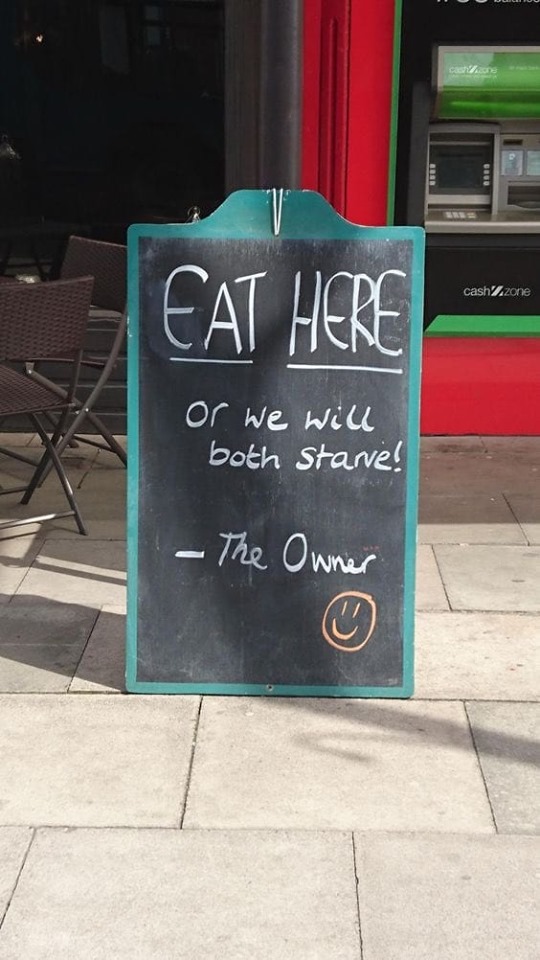 cashzone
cashzone
EAT HERE
Or we will
both starve!
– The Owner